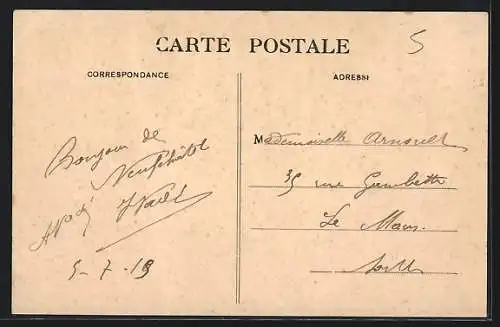 CARTE POSTALE
5
CORRESPONDANCE
ADRESSE
Bonjour de
Neufchâtel
5-7-19
Mademoiselle Arnoult
35 rue Gambetta
Le Mans
Sarthe